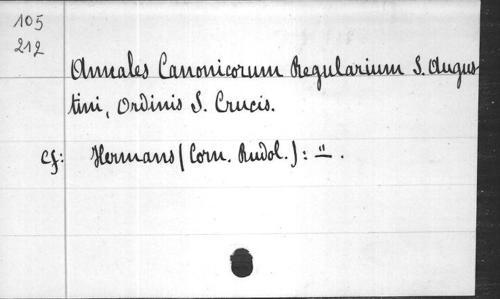 105
212
Annales Canonicorum Regularium S. Augus
tini, Ordinis S. Crucis.
cf: Hermans (Corn. Rudol.): = " .